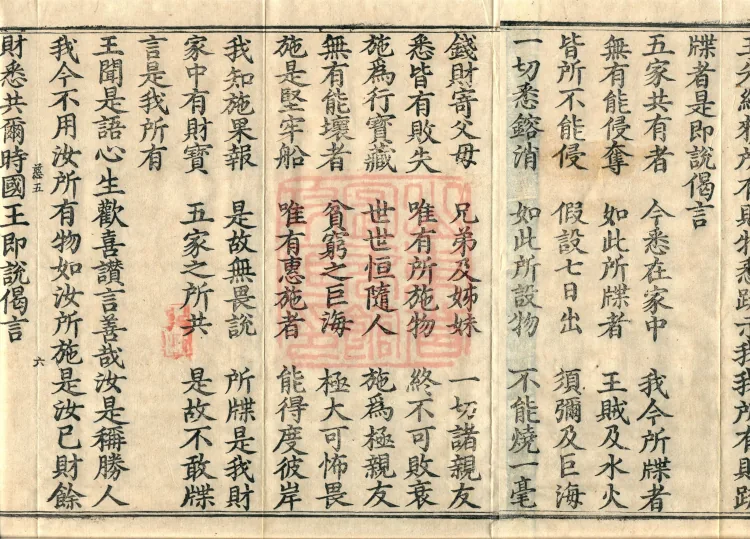 牒者是即說偈言
五家共有者　今悉在家中　我今所牒者
無有能侵奪　如此所牒者　王賊及水火
皆所不能侵　假設七日出　須彌及巨海
一切悉鎔消　如此所設物　不能燒一毫
錢財寄父母　兄弟及姊妹　一切諸親友
悉皆有敗失　唯有所施物　終不可敗衰
施為行寶藏　世世恒隨人　施為極親友
無有能壞者　貧窮之巨海　極大可怖畏
施是堅牢船　唯有惠施者　能得度彼岸
我知施果報　是故無畏說　所牒是我財
家中有財寶　五家之所共　是故不敢牒
言是我所有
王聞是語心生歡喜讚言善哉汝是稱勝人
我今不用汝所有物如汝所施是汝已財餘
六
財悉共爾時國王即說偈言